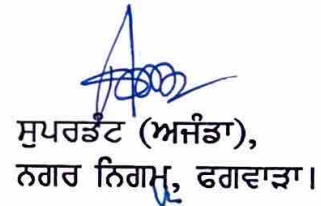 ਸੁਪਰਡੰਟ (ਅਜੰਡਾ),
ਨਗਰ ਨਿਗਮ, ਫਗਵਾੜਾ।